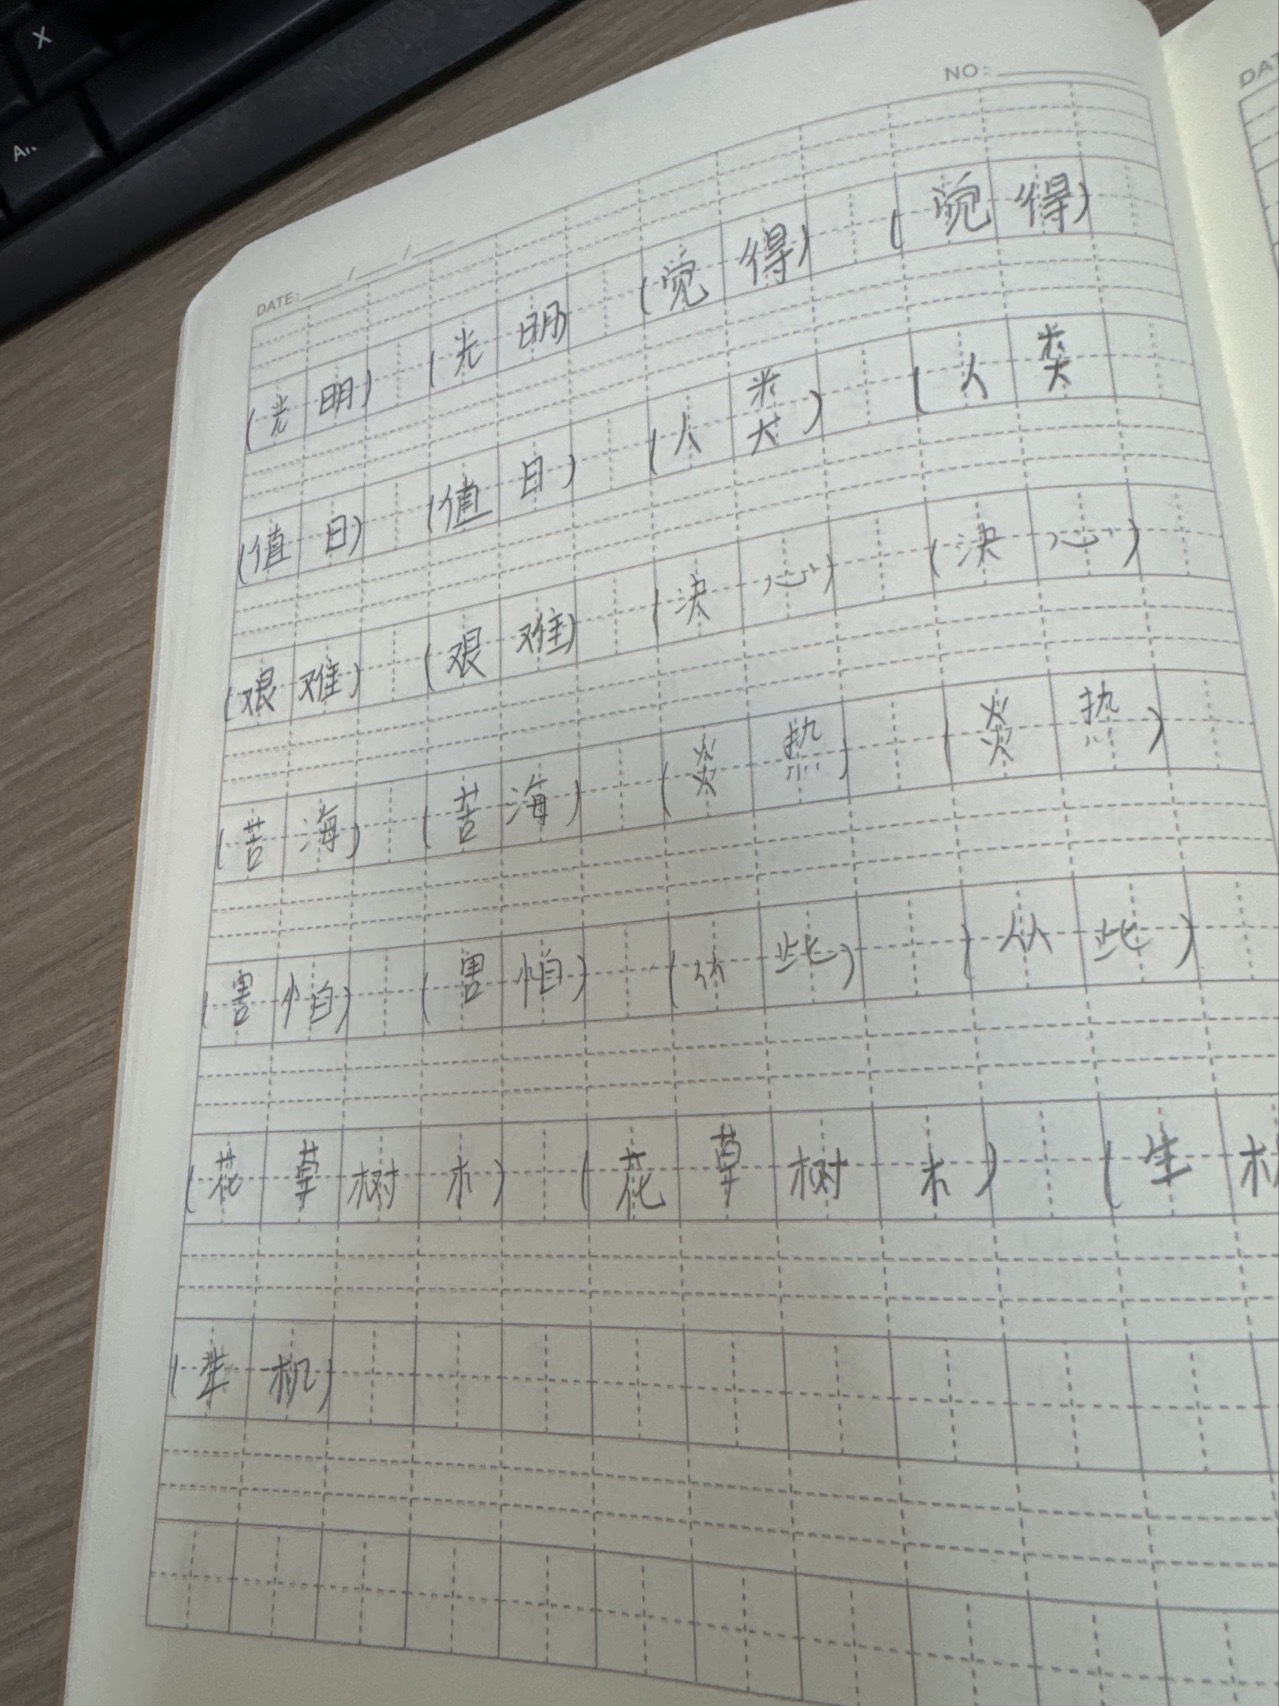 X
NO:
DATE: / /
(光明) (光明) (觉得) (觉得)
(值日) (值日) (人类) (人类)
(艰难) (艰难) (决心) (决心)
(苦海) (苦海) (炎热) (炎热)
(害怕) (害怕) (从此) (从此)
(花草树木) (花草树木) (生机
(生机)